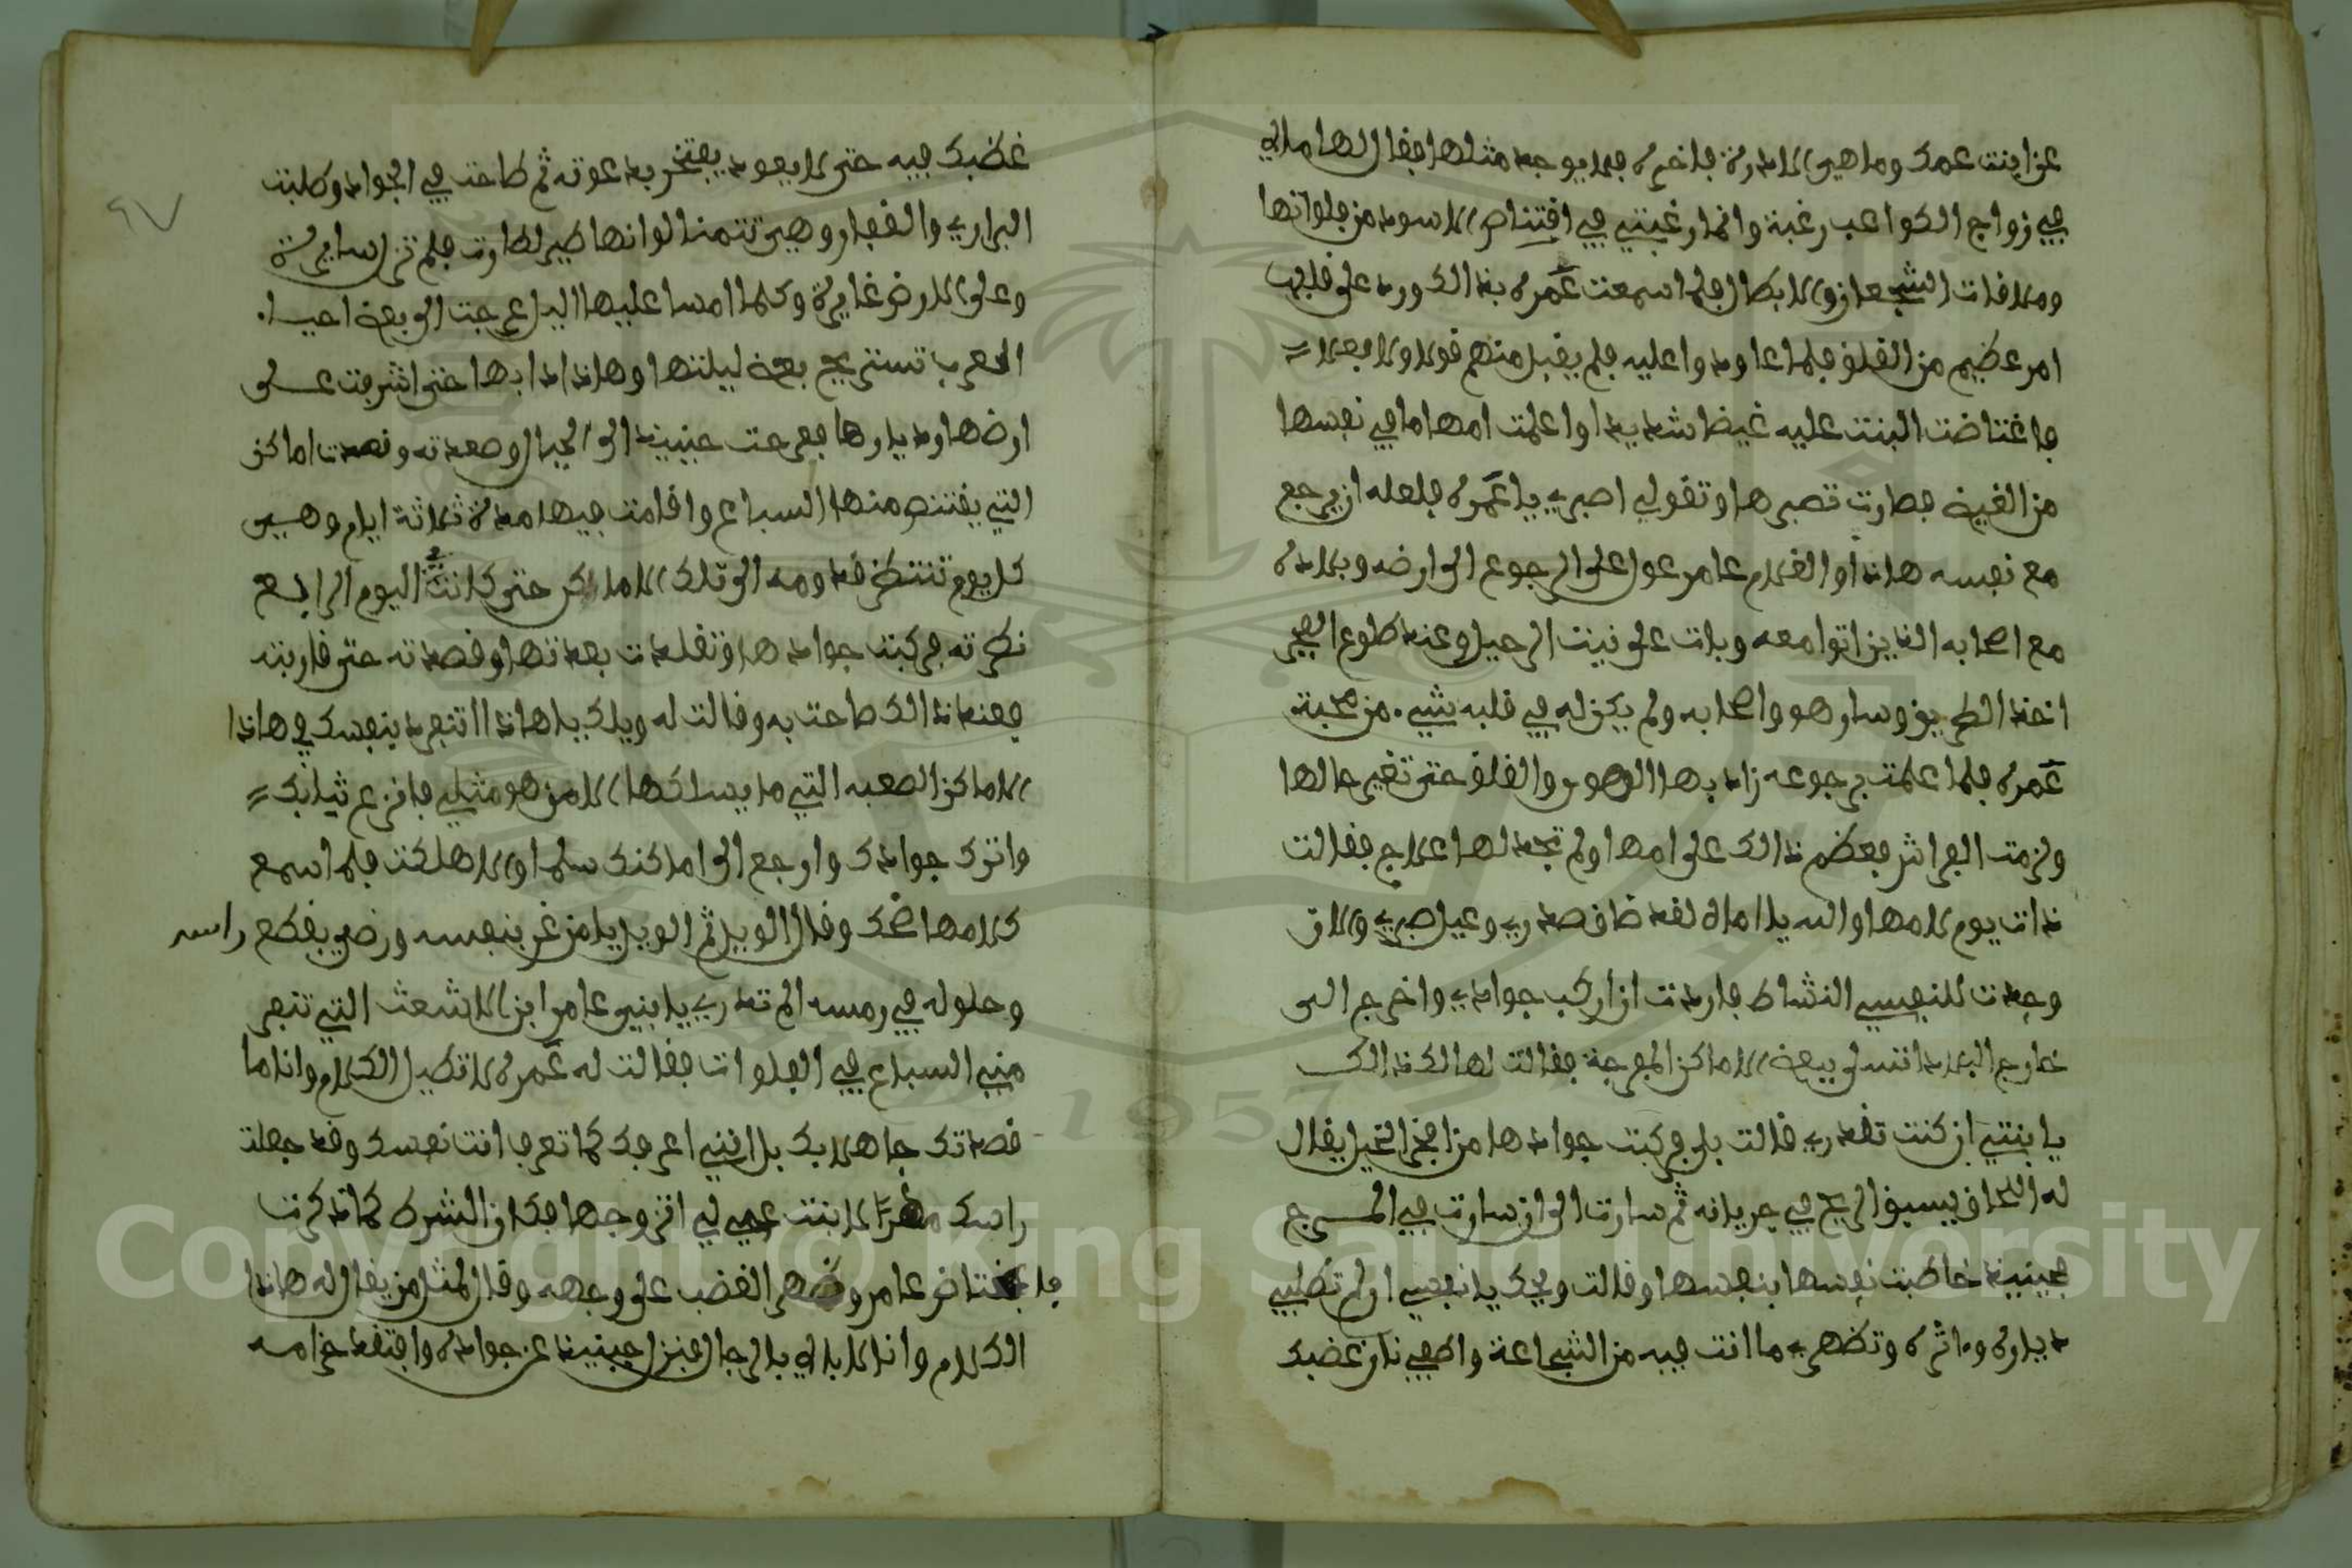 عن ابنت عمك وما هي الا درة فاخرة فلا يوجد مثلها فقال لها مالي
في زواج الكواعب رغبة وانما رغبتي في اقتناص الاسود من فلواتها
وملاقات الشجعان والابطال فلما سمعت عمرة بذالك ورد على قلبها
امر عظيم من القلق فلما عاودوا عليه فلم يقبل منهم قولا ولا فعلا
فاغتاضت البنت عليه غيضا شديدا واعلمت امها ما في نفسها
من الغيض فصارت تصبرها وتقول اصبري يا عمرة فلعله ان يرجع
مع نفسه هاذا والغلام عامر عول على الرجوع الى ارضه وبلاده
مع اصحابه الذين اتوا معه وبات على نيت الرحيل وعند طلوع الفجر
اخذ الطريق وسار هو واصحابه ولم يكن له في قلبه شيء من محبة
عمرة فلما علمت برجوعه زاد بها الهوس والقلق حتى تغير حالها
ولزمت الفراش فعظم ذالك على امها ولم تجد لها علاج فقالت
ذات يوم لامها والله يا اماه لقد ضاق صدري وعيل صبري والان
وجدت للنفسي النشاط فاردت ان اركب جوادي واخرج الى
خارج البلاد اتسلى ببعض الاماكن المفرجة فقالت لها لك ذالك
يا بنتي ان كنت تقدري قالت بلى فركبت جوادها من افخر الخيل يقال
له اللحاق يسبق الريح في جريانه ثم سارت الى ان سارت في المرج
فحينيذ خاطبت نفسها بنفسها وقالت ويحك يا نفسي اولم تطلبي
دياره وماثره وتظهري ما انت فيه من الشجاعة واطفي نار غضبك
غضبك فيه حتى لا يعود يفتخر بدعوته ثم طاحت في الجواد وطلبت
البراري والقفار وهي تتمنا لو انها طير لطارت فلم تزل سايرة
وعلى الارض غايرة وكلما امسا عليها اليل عرجت الى بعض احياء
العرب تستريح بعض ليلتها وهاذا دابها حتى اشرفت على
ارضها وديارها فعرجت حينيذ الى الجبال وصعدته وقصدت اماكن
التي يقتنص منها السباع واقامت فيها مدة ثلاثة ايام وهي
كل يوم تنتظر قدومه الى تلك الاماكن حتى كانت اليوم الرابع
نظرته فركبت جوادها وتقلدت بعدتها وقصدته حتى قاربته
فعند ذالك صاحت به وقالت له ويلك يا هاذا اتنفرد بنفسك في هاذا
الاماكن الصعبه التي ما يسلكها الا من هو مثلي فانزع ثيابك
واترك جوادك وارجع الى اماكنك سلما والا هلكت فلما سمع
كلامها ضحك وقال الويل ثم الويل يا من غر بنفسه ورضي بقطع راسه
وحلوله في رمسه الم تدري يا بني عامر ابن الاشعث التي تنفر
مني السباع في الفلوات فقالت له عمرة لا تطيل الكلام وانا ما
قصدتك جاهلا بك بل انني اعرفك كما تعرف انت نفسك وقد جعلت
راسك مهرا لابنت عمي لي اتزوجها فكان الشرط كما ذكرت
فاغتاض عامر وظهر الغضب على وجهه وقال لمثلي من يقال له هاذا
الكلام وانا لا ابالي بالرجال فنزل حينيذ عن جواده وافتقد حزامه